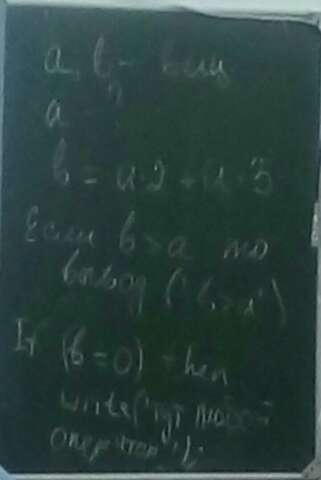 a, b - вещ
a - ?
b = a·2 + a·3
Если b > a то
вывод ('b>a')
If (b=0) then
write('тут любой
оператор');